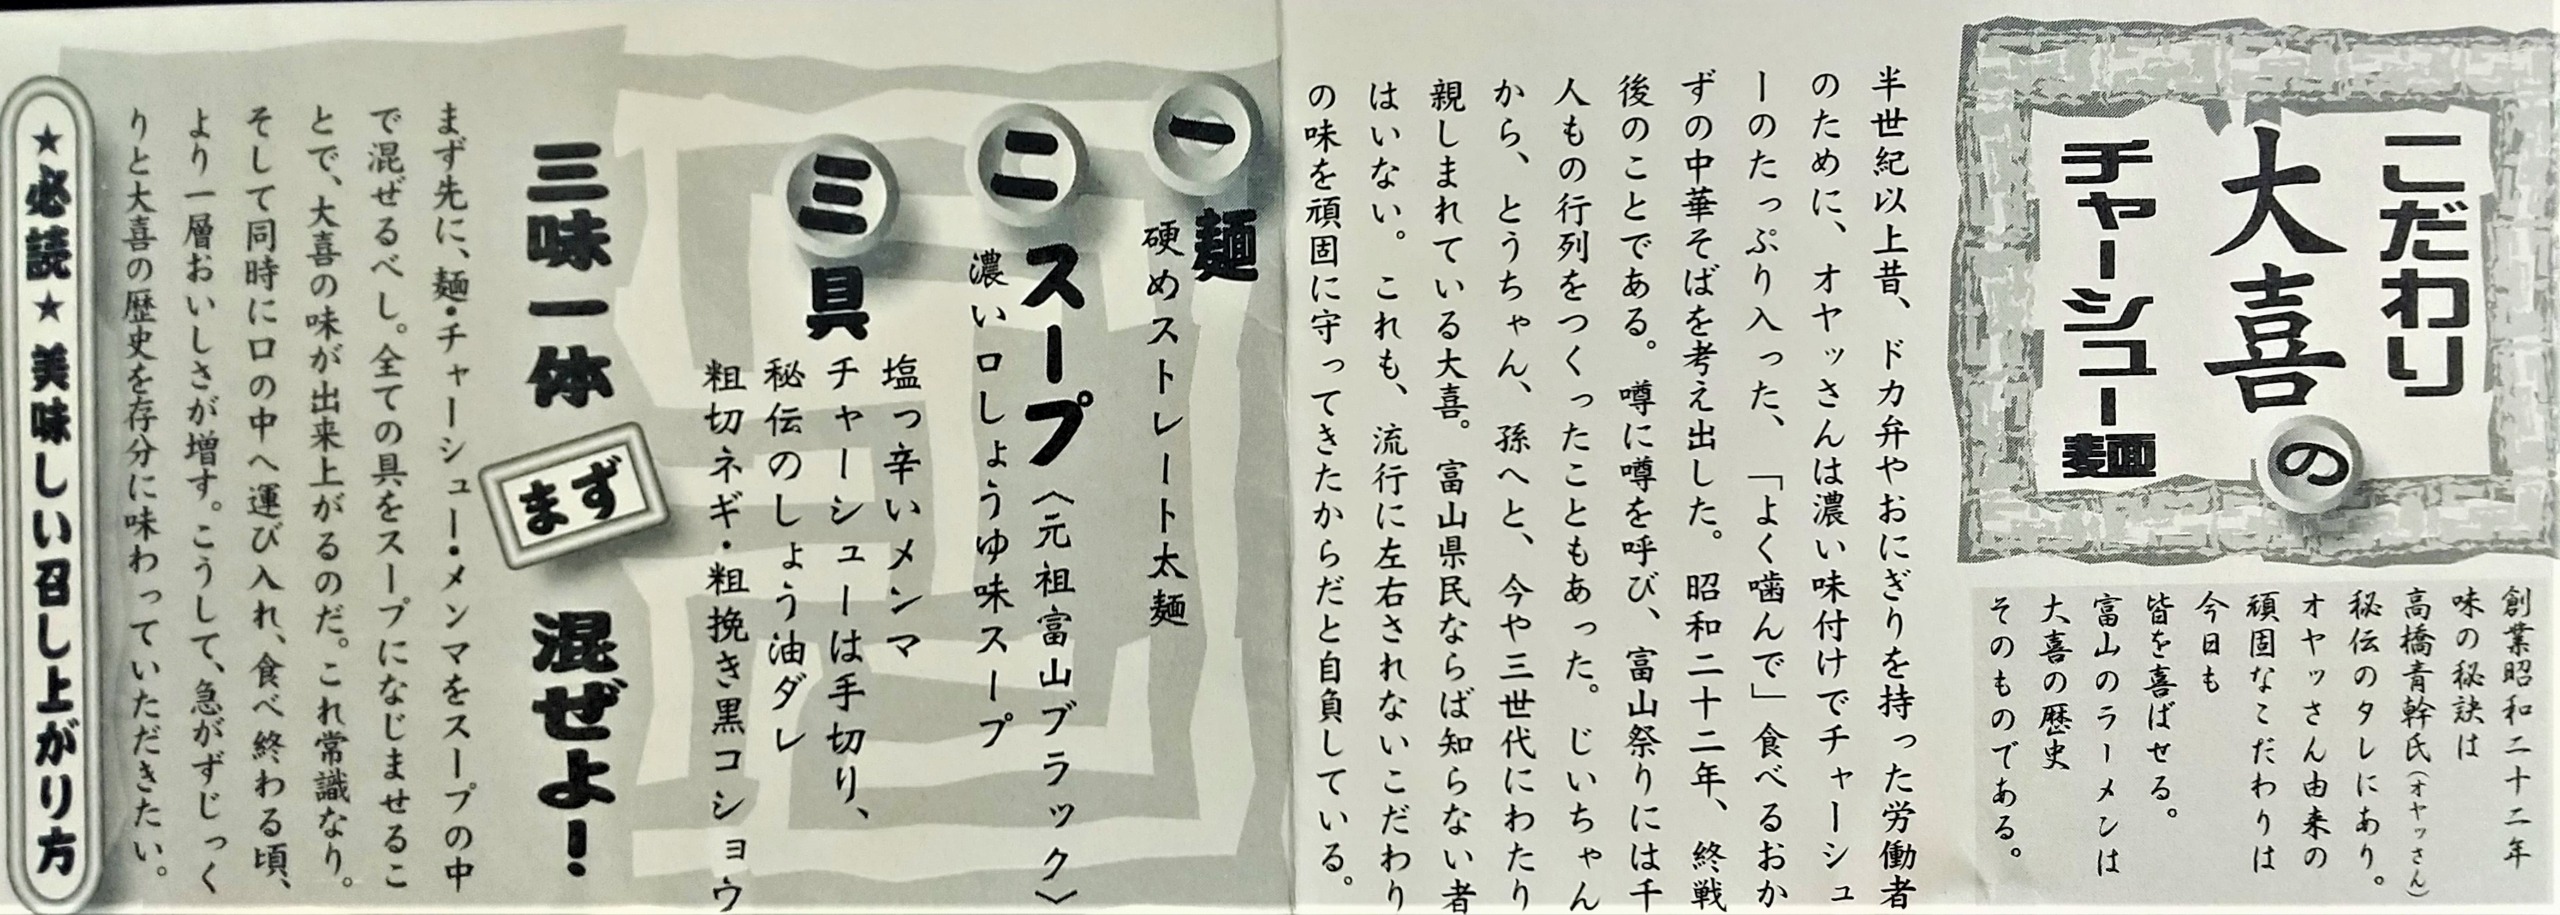 こだわり
大喜の
チャーシュー麺
創業昭和二十二年
味の秘訣は
高橋青幹氏(オヤッさん)
秘伝のタレにあり。
オヤッさん由来の
頑固なこだわりは
今日も
皆を喜ばせる。
富山のラーメンは
大喜の歴史
そのものである。
半世紀以上昔、ドカ弁やおにぎりを持った労働者
のために、オヤッさんは濃い味付けでチャーシュ
ーのたっぷり入った、「よく噛んで」食べるおか
ずの中華そばを考え出した。昭和二十二年、終戦
後のことである。噂に噂を呼び、富山祭りには千
人もの行列をつくったこともあった。じいちゃん
から、とうちゃん、孫へと、今や三世代にわたり
親しまれている大喜。富山県民ならば知らない者
はいない。これも、流行に左右されないこだわり
の味を頑固に守ってきたからだと自負している。
一 麺
硬めストレート太麺
二 スープ〈元祖富山ブラック〉
濃い口しょうゆ味スープ
三 具
塩っ辛いメンマ
チャーシューは手切り、
秘伝のしょう油ダレ
粗切ネギ・粗挽き黒コショウ
三味一体 まず 混ぜよ!
まず先に、麺・チャーシュー・メンマをスープの中
で混ぜるべし。全ての具をスープになじませるこ
とで、大喜の味が出来上がるのだ。これ常識なり。
そして同時に口の中へ運び入れ、食べ終わる頃、
より一層おいしさが増す。こうして、急がずじっく
りと大喜の歴史を存分に味わっていただきたい。
★必読★美味しい召し上がり方